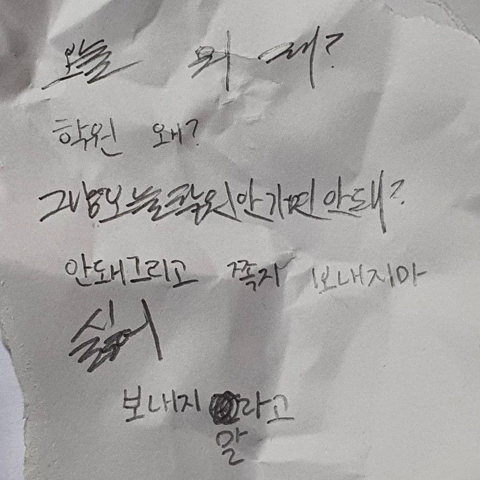 오늘 뭐 해?
학원 왜?
그냥 오늘 학원 안가면 안돼?
안돼 그리고 쪽지 보내지마
싫어
보내지 라고
말